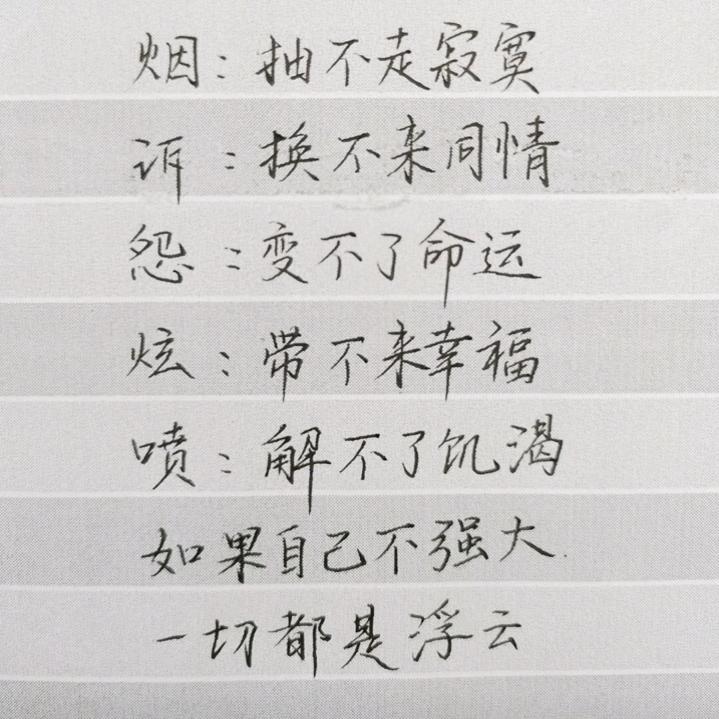 烟：抽不走寂寞
诉：换不来同情
怨：变不了命运
炫：带不来幸福
喷：解不了饥渴
如果自己不强大
一切都是浮云